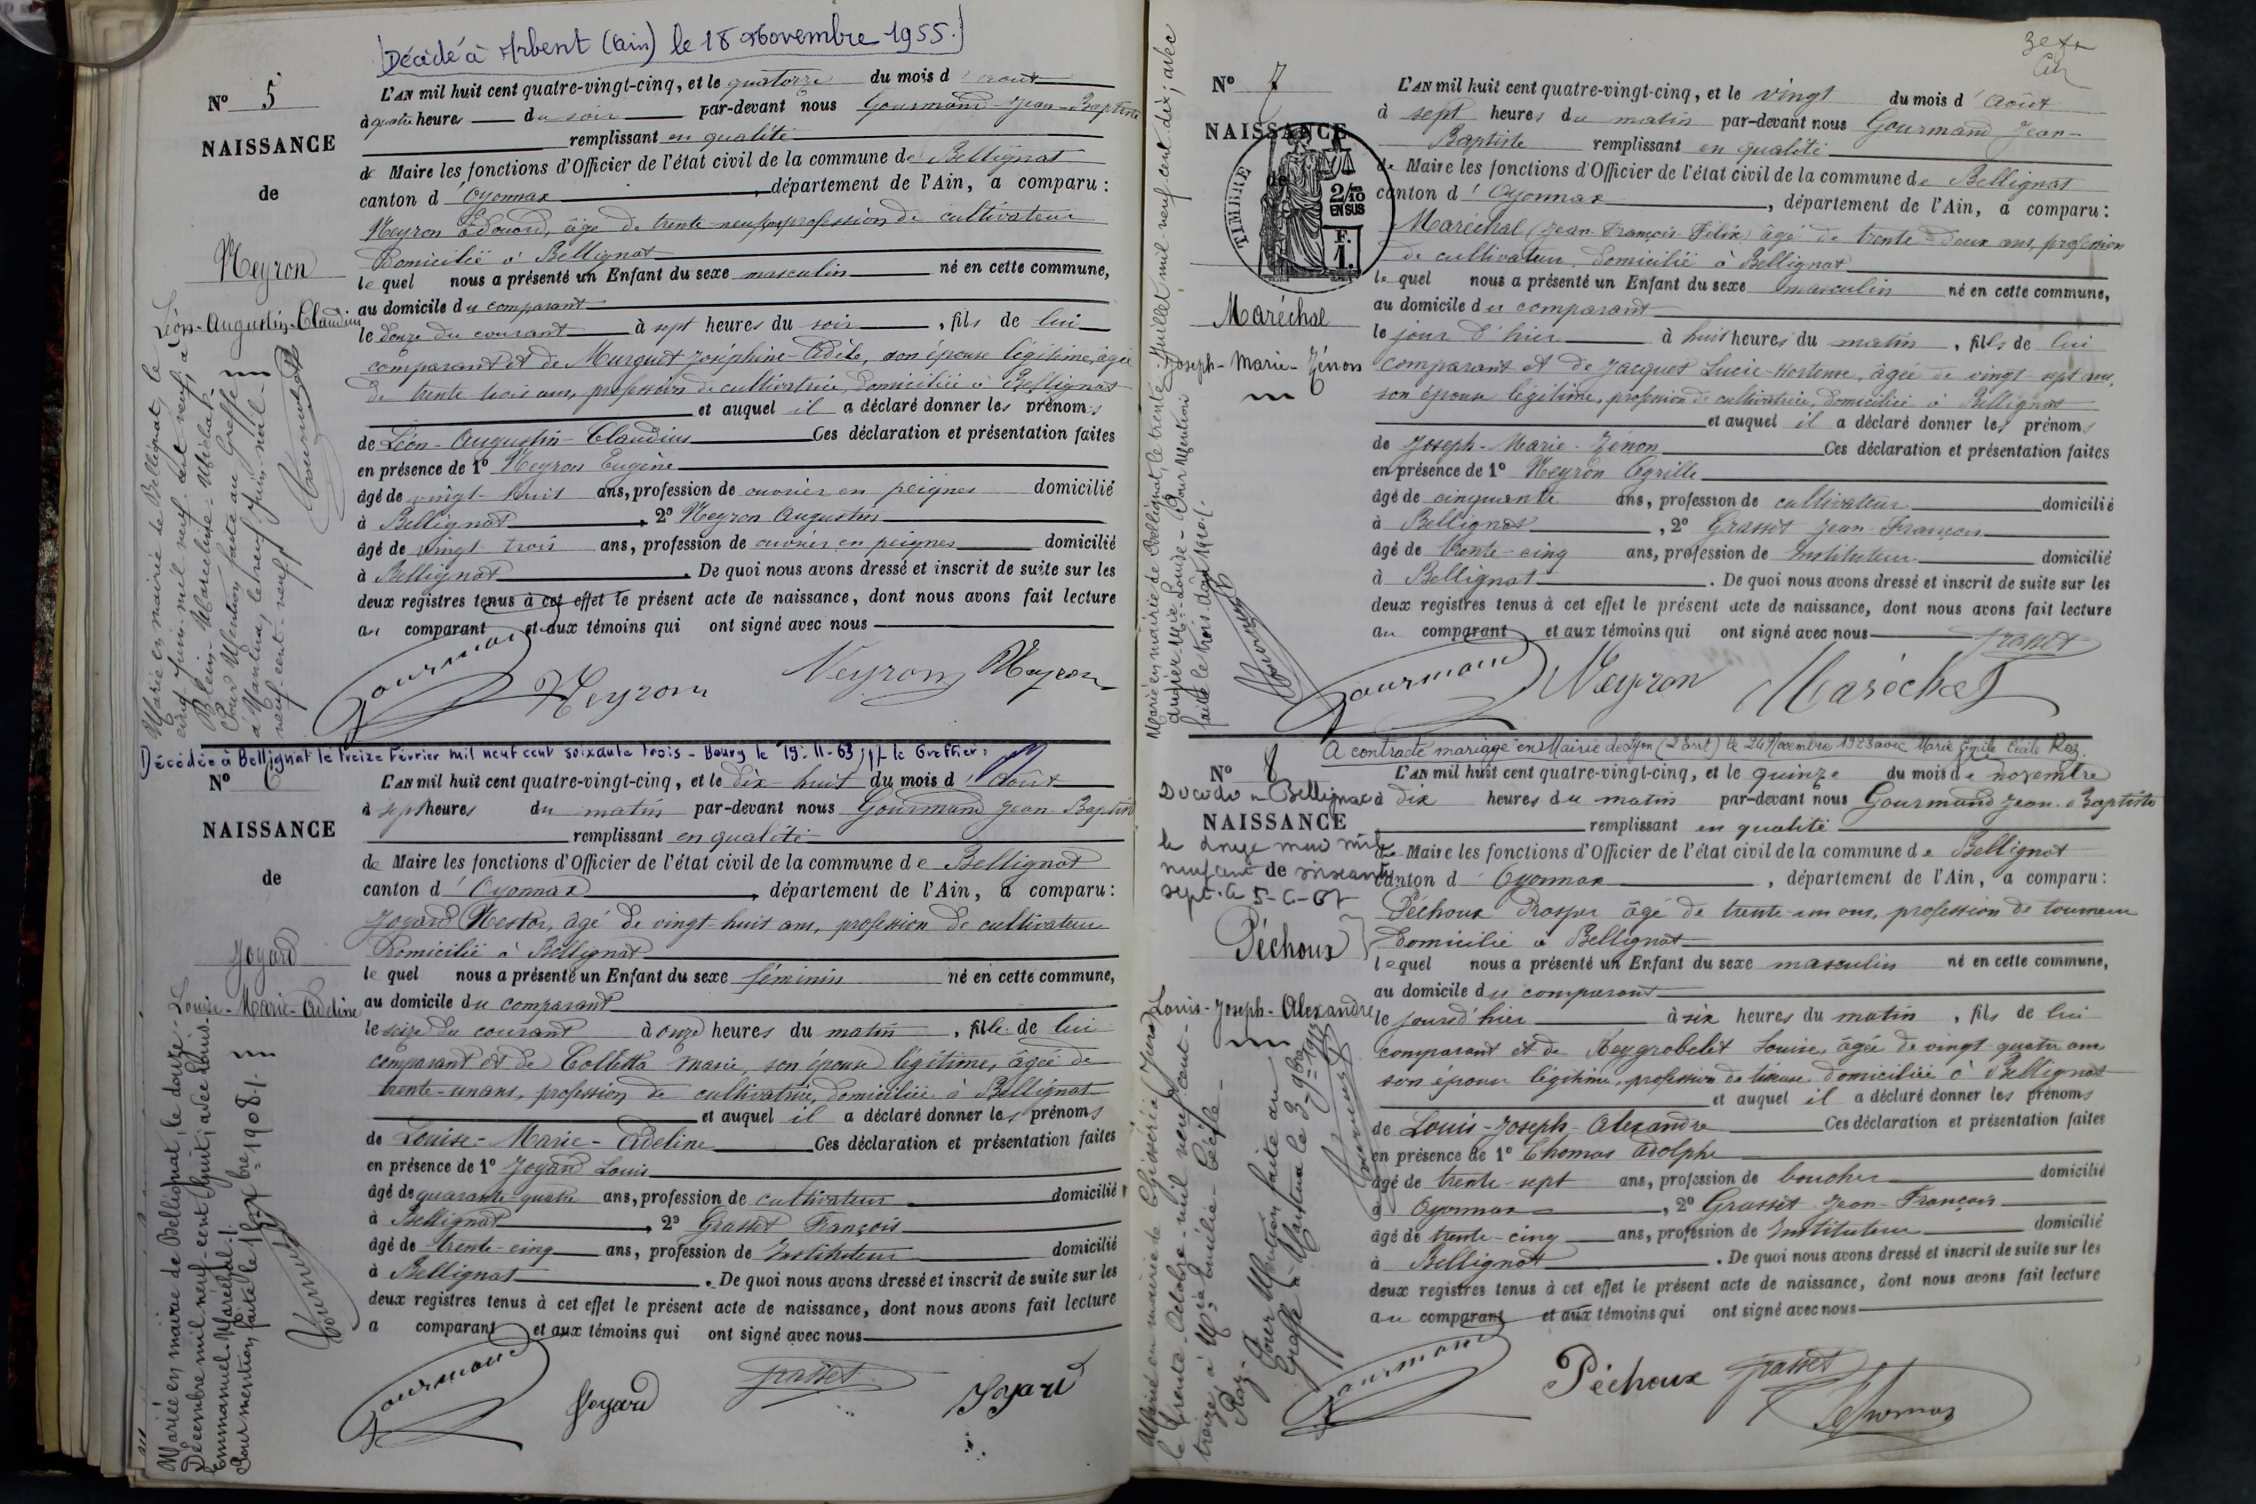 Décédé à Arbent (Ain) le 18 Novembre 1955.
N° 5
NAISSANCE
de
Neyron
Léon-Augustin-Claudius
L'AN mil huit cent quatre-vingt-cinq, et le quatorze du mois d'août
à quatre heures du soir par-devant nous Gourmand Jean-Baptiste
remplissant en qualité
de Maire les fonctions d'Officier de l'état civil de la commune de Bellignat
canton d'Oyonnax, département de l'Ain, a comparu :
Neyron Edouard, âgé de trente-neuf ans profession de cultivateur
Domicilié à Bellignat
lequel nous a présenté un Enfant du sexe masculin né en cette commune,
au domicile du comparant
le douze du courant à sept heures du soir, fils de lui
comparant et de Murquet Joséphine-Adèle, son épouse légitime, âgée
de trente trois ans, profession de cultivatrice, domiciliée à Bellignat
et auquel il a déclaré donner les prénoms
de Léon-Augustin-Claudius Ces déclaration et présentation faites
en présence de 1° Neyron Eugène
âgé de vingt-huit ans, profession de ouvrier en peignes domicilié
à Bellignat, 2° Neyron Augustin
âgé de vingt trois ans, profession de ouvrier en peignes domicilié
à Bellignat. De quoi nous avons dressé et inscrit de suite sur les
deux registres tenus à cet effet le présent acte de naissance, dont nous avons fait lecture
au comparant et aux témoins qui ont signé avec nous
Gourmand Neyron Neyron Neyron
Marié en mairie de Bellignat, le
cinq Juin mil neuf cent neuf, à
Marceline
Pour Mention faite au Greffe
à Nantua, le huit Juin mil
neuf-cent-neuf
Décédée à Bellignat le treize Février mil neuf cent soixante trois - Bourg le 19-11-63 le Greffier
N° 6
NAISSANCE
de
Joyard
Louise-Marie-Adeline
L'AN mil huit cent quatre-vingt-cinq, et le dix-huit du mois d'août
à sept heures du matin par-devant nous Gourmand Jean-Baptiste
remplissant en qualité
de Maire les fonctions d'Officier de l'état civil de la commune de Bellignat
canton d'Oyonnax, département de l'Ain, a comparu :
Joyard Nestor, âgé de vingt-huit ans, profession de cultivateur
Domicilié à Bellignat
lequel nous a présenté un Enfant du sexe féminin né en cette commune,
au domicile du comparant
le seize du courant à onze heures du matin, fille de lui
comparant et de Colletta Marie, son épouse légitime, âgée de
trente-un ans, profession de cultivatrice, domiciliée à Bellignat
et auquel il a déclaré donner les prénoms
de Louise-Marie-Adeline Ces déclaration et présentation faites
en présence de 1° Joyard Louis
âgé de quarante-quatre ans, profession de cultivateur domicilié
à Bellignat, 2° Grasset François
âgé de trente-cinq ans, profession de Instituteur domicilié
à Bellignat. De quoi nous avons dressé et inscrit de suite sur les
deux registres tenus à cet effet le présent acte de naissance, dont nous avons fait lecture
a comparant et aux témoins qui ont signé avec nous
Gourmand Joyard Grasset Joyard
Mariée en mairie de Bellignat, le douze
Décembre mil neuf-cent huit, avec Louis-
Emmanuel Maréchal
Pour mention, faite le 1908
N° 7
NAISSANCE
de
TIMBRE
2/10
EN SUS
F.
1.
Maréchal
Joseph-Marie-Zénon
L'AN mil huit cent quatre-vingt-cinq, et le vingt du mois d'août
à sept heures du matin par-devant nous Gourmand Jean-
Baptiste remplissant en qualité
de Maire les fonctions d'Officier de l'état civil de la commune de Bellignat
canton d'Oyonnax, département de l'Ain, a comparu :
Maréchal (Jean-François-Félix) âgé de trente-deux ans, profession
de cultivateur domicilié à Bellignat
lequel nous a présenté un Enfant du sexe masculin né en cette commune,
au domicile du comparant
le jour d'hier à huit heures du matin, fils de lui
comparant et de Jacquet Lucie-Hortense, âgée de vingt-sept ans,
son épouse légitime, profession de cultivatrice, domiciliée à Bellignat
et auquel il a déclaré donner les prénoms
de Joseph-Marie-Zénon Ces déclaration et présentation faites
en présence de 1° Neyron
âgé de cinquante ans, profession de cultivateur domicilié
à Bellignat, 2° Grasset Jean-François
âgé de trente-cinq ans, profession de Instituteur domicilié
à Bellignat. De quoi nous avons dressé et inscrit de suite sur les
deux registres tenus à cet effet le présent acte de naissance, dont nous avons fait lecture
au comparant et aux témoins qui ont signé avec nous
Grasset
Gourmand Neyron Maréchal
Marié en mairie de Bellignat, le trente Juillet mil neuf cent dix, avec
Louise - Pour Mention
faite le trois Août 1910
A contracté mariage en Mairie de Lyon (2 arrt) le 24 Novembre 1923 avec Marie Emilie Cécile Roz.
N° 8
NAISSANCE
de
Décédé à Bellignat
le onze mars mil
neuf cent soixante
sept
Péchoux
Louis-Joseph-Alexandre
L'AN mil huit cent quatre-vingt-cinq, et le quinze du mois de novembre
à dix heures du matin par-devant nous Gourmand Jean-Baptiste
remplissant en qualité
de Maire les fonctions d'Officier de l'état civil de la commune de Bellignat
canton d'Oyonnax, département de l'Ain, a comparu :
Péchoux Prosper âgé de trente-un ans, profession de tourneur
Domicilié à Bellignat
lequel nous a présenté un Enfant du sexe masculin né en cette commune,
au domicile du comparant
le jour d'hier à six heures du matin, fils de lui
comparant et de Reygrobelet Louise, âgée de vingt-quatre ans
son épouse légitime, profession de tisseuse, domiciliée à Bellignat
et auquel il a déclaré donner les prénoms
de Louis-Joseph-Alexandre Ces déclaration et présentation faites
en présence de 1° Thomas Adolphe
âgé de trente-sept ans, profession de boucher domicilié
à Oyonnax, 2° Grasset Jean-François
âgé de trente-cinq ans, profession de Instituteur domicilié
à Bellignat. De quoi nous avons dressé et inscrit de suite sur les
deux registres tenus à cet effet le présent acte de naissance, dont nous avons fait lecture
au comparant et aux témoins qui ont signé avec nous
Gourmand Péchoux Grasset
Marié en mairie de (Jura)
le trente Octobre mil neuf cent
treize, à Emilie Cécile
Roz. Pour Mention faite au
Greffe à Nantua le 3 9bre 1913